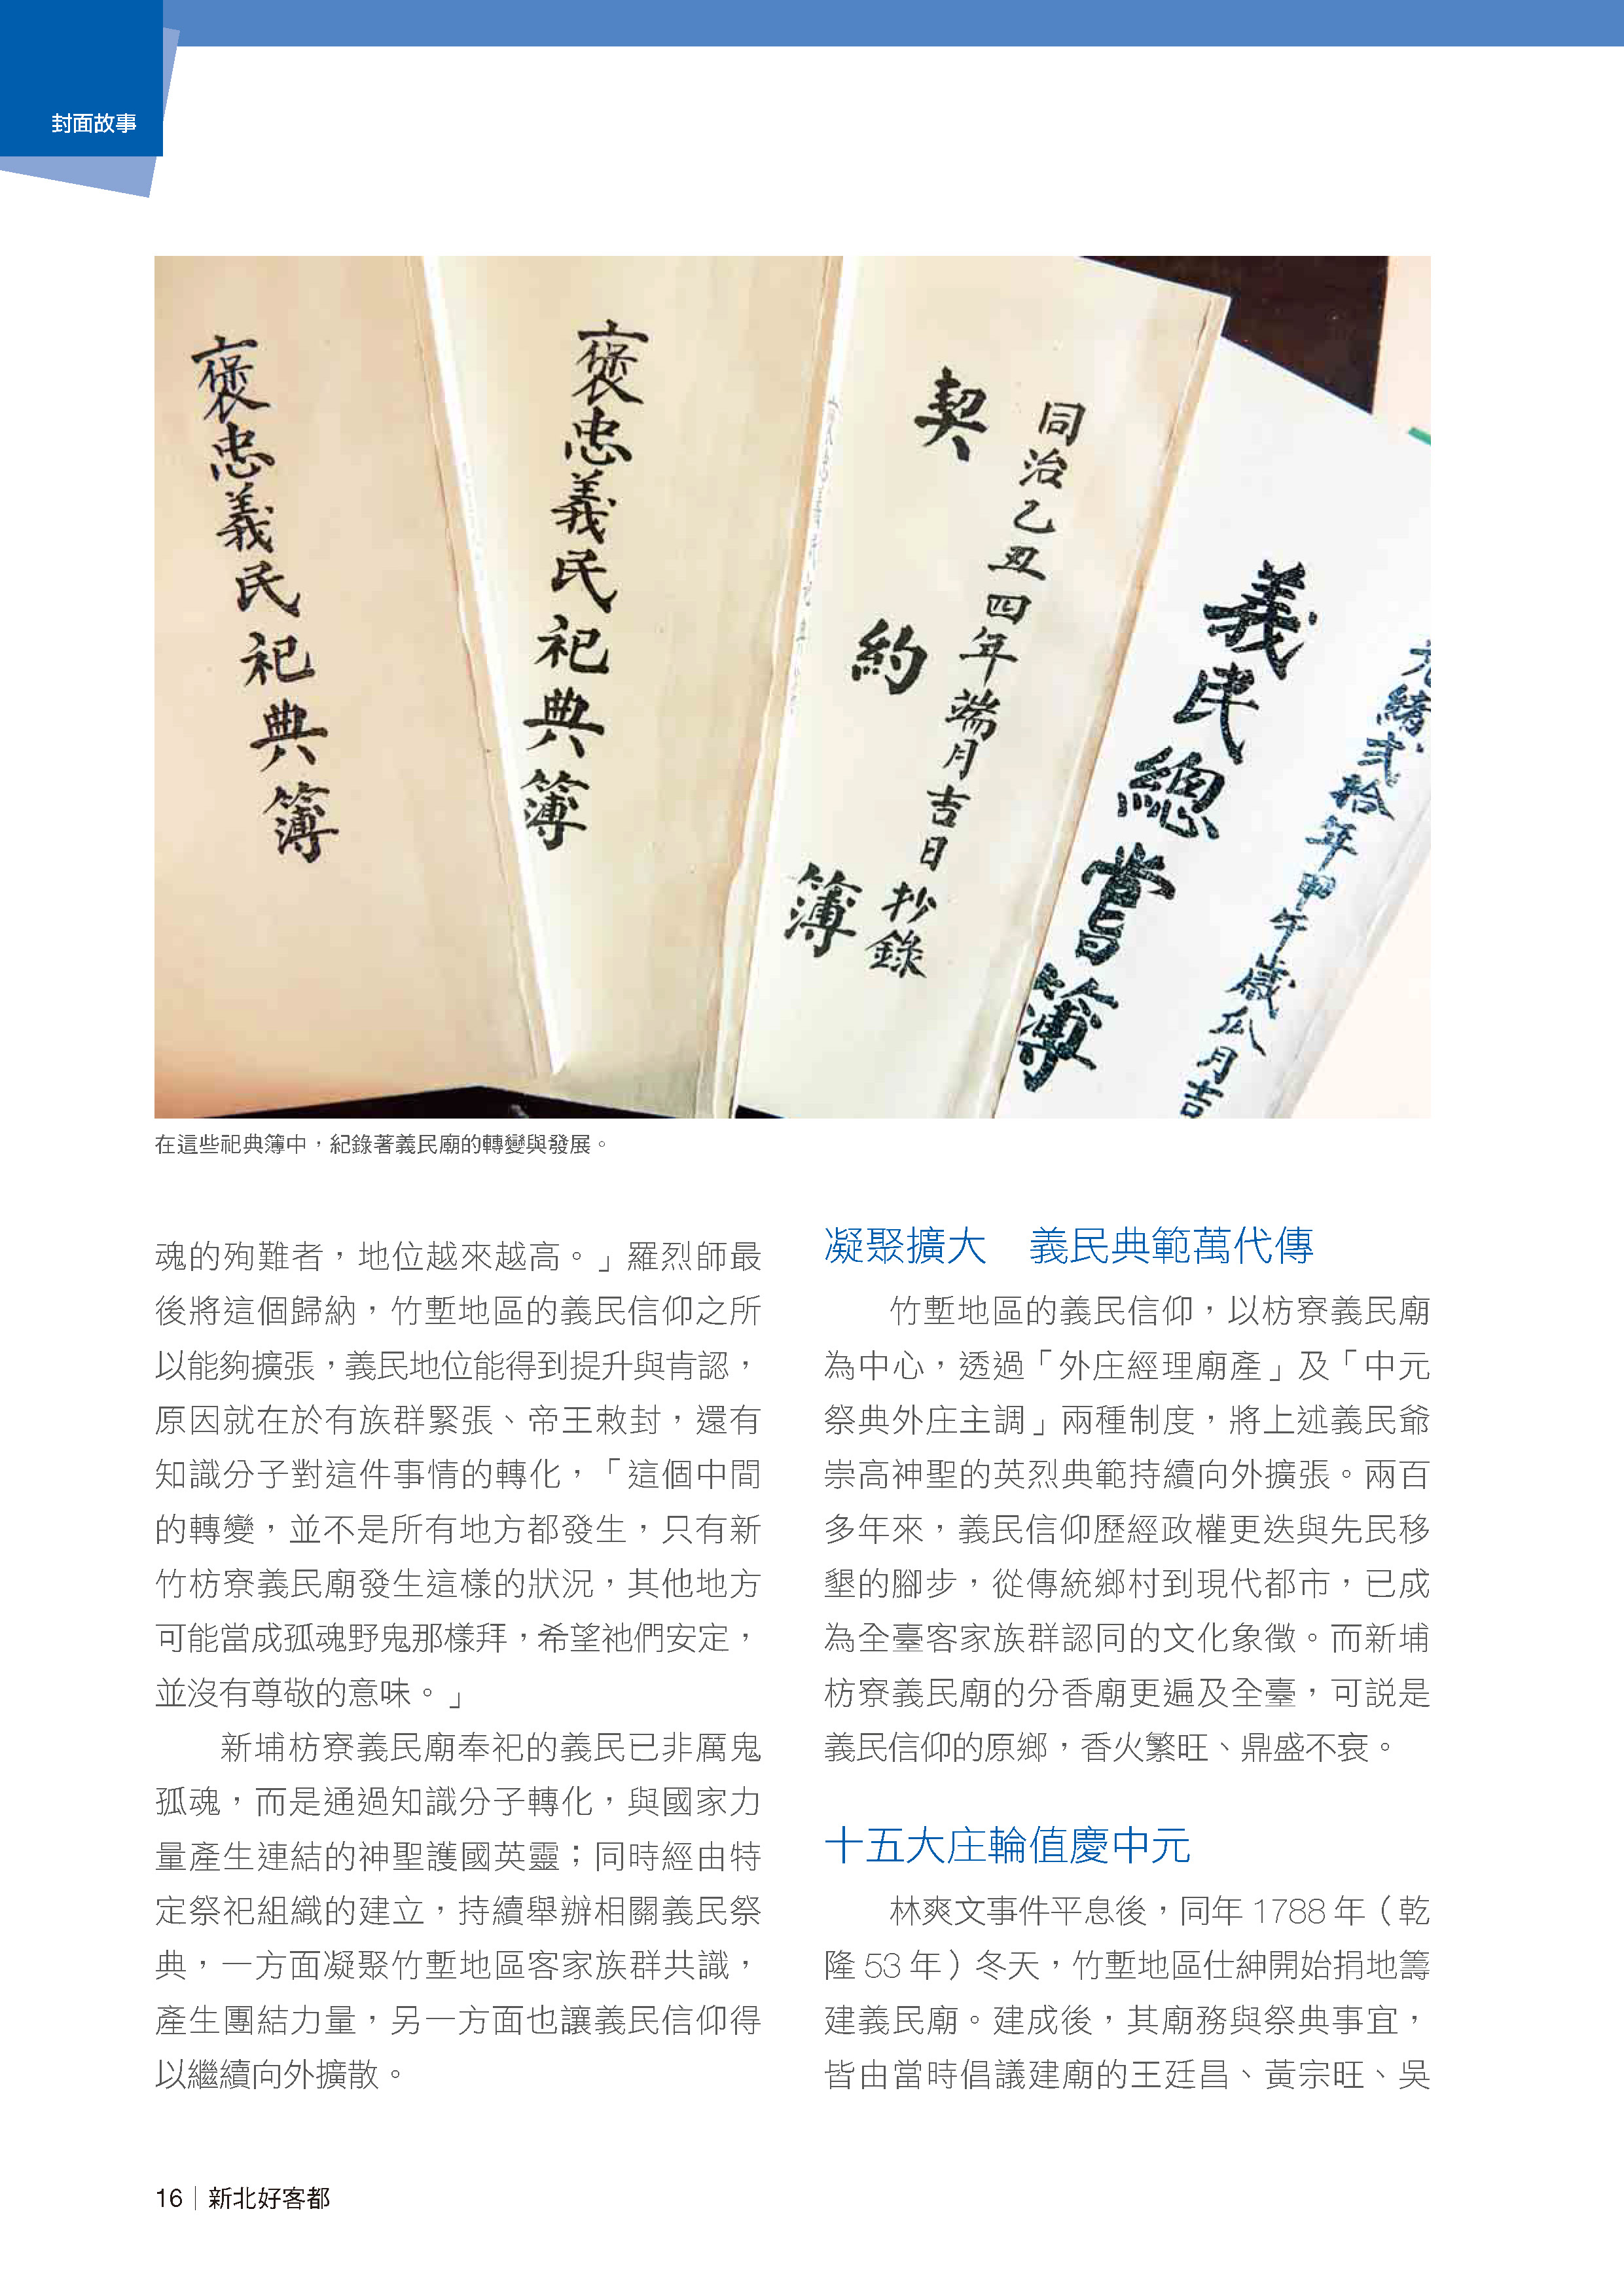 封面故事
褒忠義民祀典簿
褒忠義民祀典簿
同治乙丑四年端月吉日抄錄
契約簿
光緒弍拾年甲午歲瓜月吉
義民總嘗簿
在這些祀典簿中，紀錄著義民廟的轉變與發展。
魂的殉難者，地位越來越高。」羅烈師最
後將這個歸納，竹塹地區的義民信仰之所
以能夠擴張，義民地位能得到提升與肯認，
原因就在於有族群緊張、帝王敕封，還有
知識分子對這件事情的轉化，「這個中間
的轉變，並不是所有地方都發生，只有新
竹枋寮義民廟發生這樣的狀況，其他地方
可能當成孤魂野鬼那樣拜，希望祂們安定，
並沒有尊敬的意味。」
新埔枋寮義民廟奉祀的義民已非厲鬼
孤魂，而是通過知識分子轉化，與國家力
量產生連結的神聖護國英靈；同時經由特
定祭祀組織的建立，持續舉辦相關義民祭
典，一方面凝聚竹塹地區客家族群共識，
產生團結力量，另一方面也讓義民信仰得
以繼續向外擴散。
凝聚擴大　義民典範萬代傳
竹塹地區的義民信仰，以枋寮義民廟
為中心，透過「外庄經理廟產」及「中元
祭典外庄主調」兩種制度，將上述義民爺
崇高神聖的英烈典範持續向外擴張。兩百
多年來，義民信仰歷經政權更迭與先民移
墾的腳步，從傳統鄉村到現代都市，已成
為全臺客家族群認同的文化象徵。而新埔
枋寮義民廟的分香廟更遍及全臺，可說是
義民信仰的原鄉，香火繁旺、鼎盛不衰。
十五大庄輪值慶中元
林爽文事件平息後，同年 1788 年（乾
隆 53 年）冬天，竹塹地區仕紳開始捐地籌
建義民廟。建成後，其廟務與祭典事宜，
皆由當時倡議建廟的王廷昌、黃宗旺、吳
16｜新北好客都